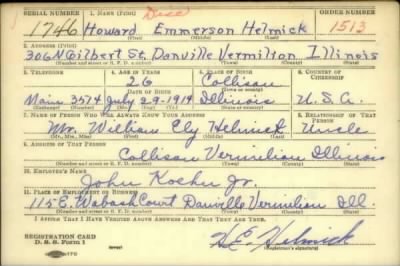 SERIAL NUMBER 1. NAME (Print) Dise ORDER NUMBER
1746 Howard Emmerson Helmick 1513
(First) (Middle) (Last)
2. ADDRESS (Print)
306 N Gilbert St, Danville Vermilion Illinois
(Number and street or R. F. D. number) (Town) (County) (State)
3. TELEPHONE 4. AGE IN YEARS 5. PLACE OF BIRTH 6. COUNTRY OF CITIZENSHIP
26 Collison
DATE OF BIRTH (Town or county)
Main 3574 July 29-1914 Illinois U.S.A.
(Exchange) (Number) (Mo.) (Day) (Yr.) (State or country)
7. NAME OF PERSON WHO WILL ALWAYS KNOW YOUR ADDRESS 8. RELATIONSHIP OF THAT PERSON
Mr. William Ely Helmick Uncle
(Mr., Mrs., Miss) (First) (Middle) (Last)
9. ADDRESS OF THAT PERSON
Collison Vermilion Illinois
(Number and street or R. F. D. number) (Town) (County) (State)
10. EMPLOYER'S NAME
John Koehn Jr.
11. PLACE OF EMPLOYMENT OR BUSINESS
115 E. Wabash Court Danville Vermilion Ill.
(Number and street or R. F. D. number) (Town) (County) (State)
I AFFIRM THAT I HAVE VERIFIED ABOVE ANSWERS AND THAT THEY ARE TRUE.
REGISTRATION CARD
D. S. S. Form 1 H.E. Helmick
(Registrant's signature)